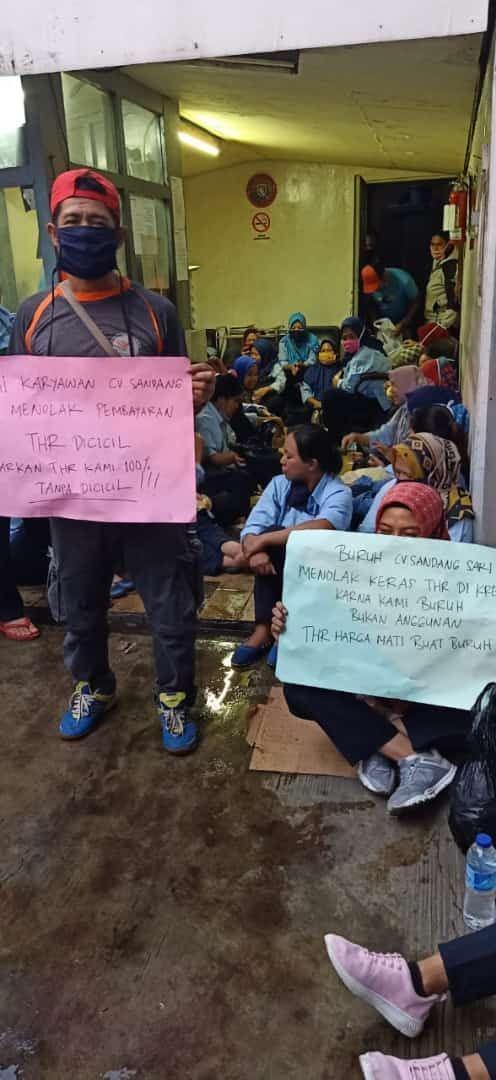 KARYAWAN CV SANDANG
MENOLAK PEMBAYARAN
THR DICICIL
ARKAN THR KAMI 100%
TANPA DICICIL !!!
BURUH CV SANDANG SARI
MENOLAK KERAS THR DI KRE
KARNA KAMI BURUH
BUKAN ANGGUNAN
THR HARGA MATI BUAT BURUH